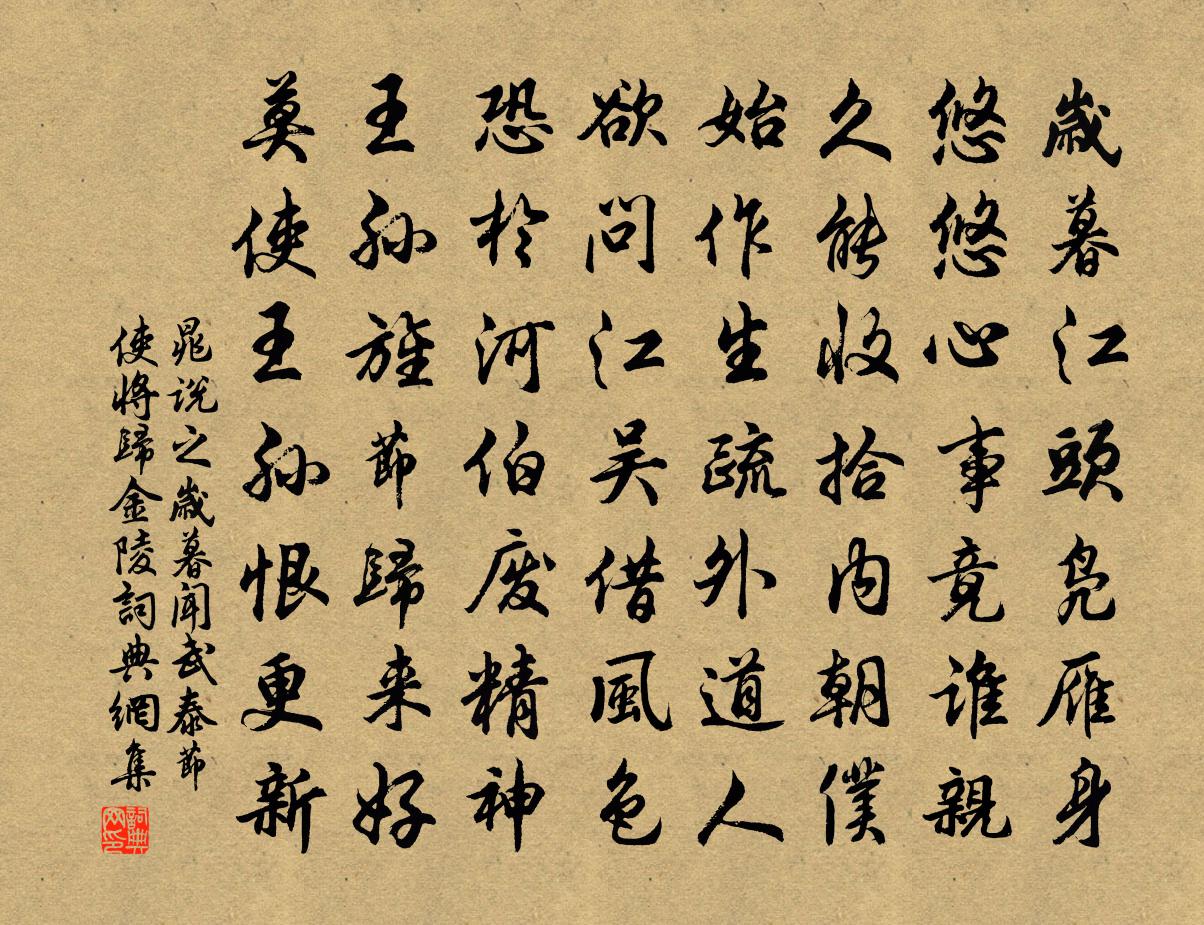 歲暮江頭鳧雁身
悠悠心事竟谁親
久能收拾內朝僕
始作生疏外道人
欲問江吴借風色
恐於河伯废精神
王孫旌節歸来好
莫使王孫恨更新
晁说之歲暮闻武泰節
使將歸金陵詞典網集
詞典网印